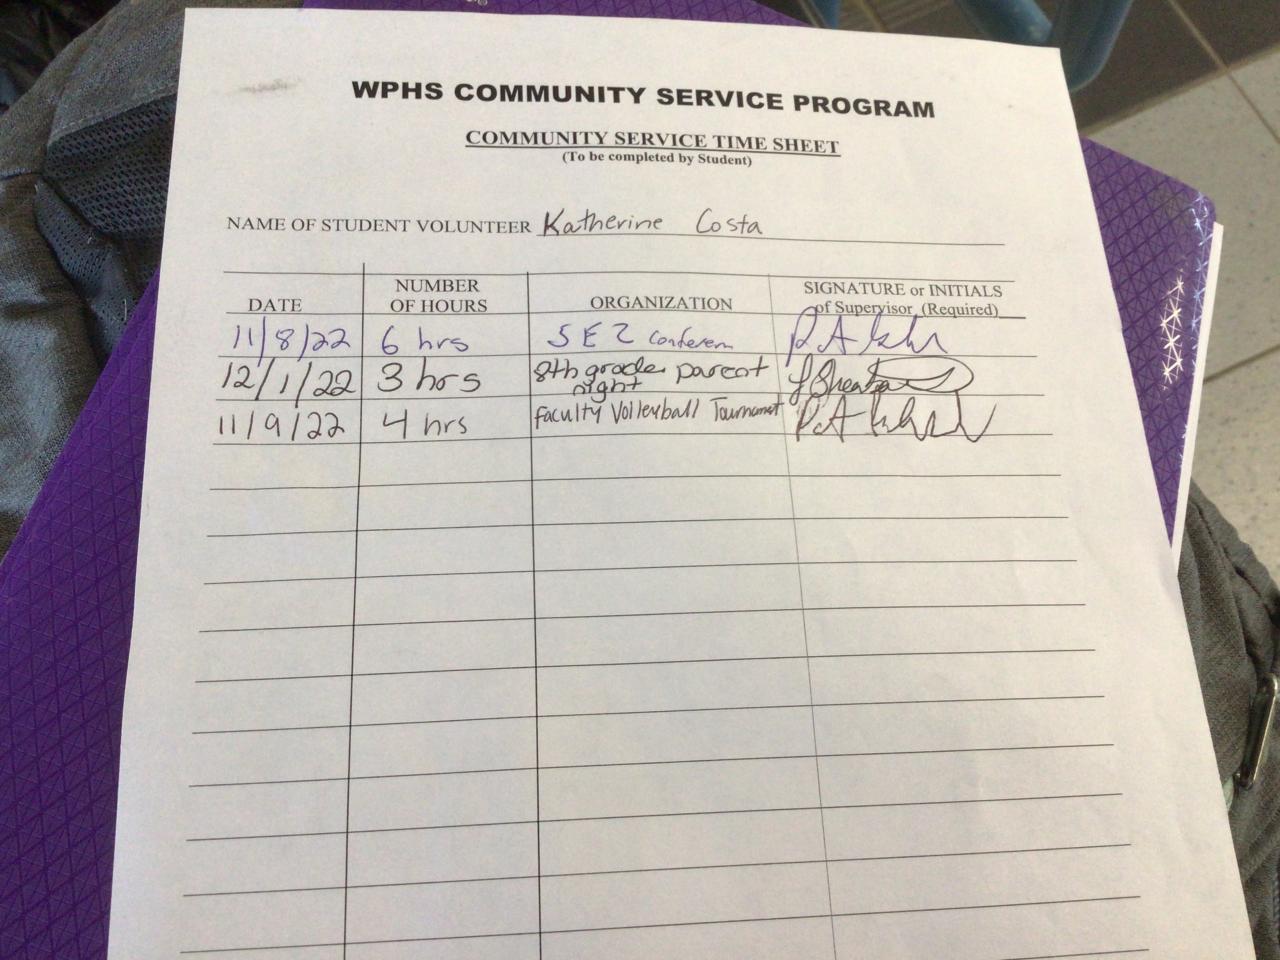 WPHS COMMUNITY SERVICE PROGRAM
COMMUNITY SERVICE TIME SHEET
(To be completed by Student)
NAME OF STUDENT VOLUNTEER Katherine Costa
DATE NUMBER OF HOURS ORGANIZATION SIGNATURE or INITIALS of Supervisor (Required)
11/8/22 6 hrs
12/1/22 3 hrs 8th grade parent night
11/9/22 4 hrs faculty Volleyball Tournament